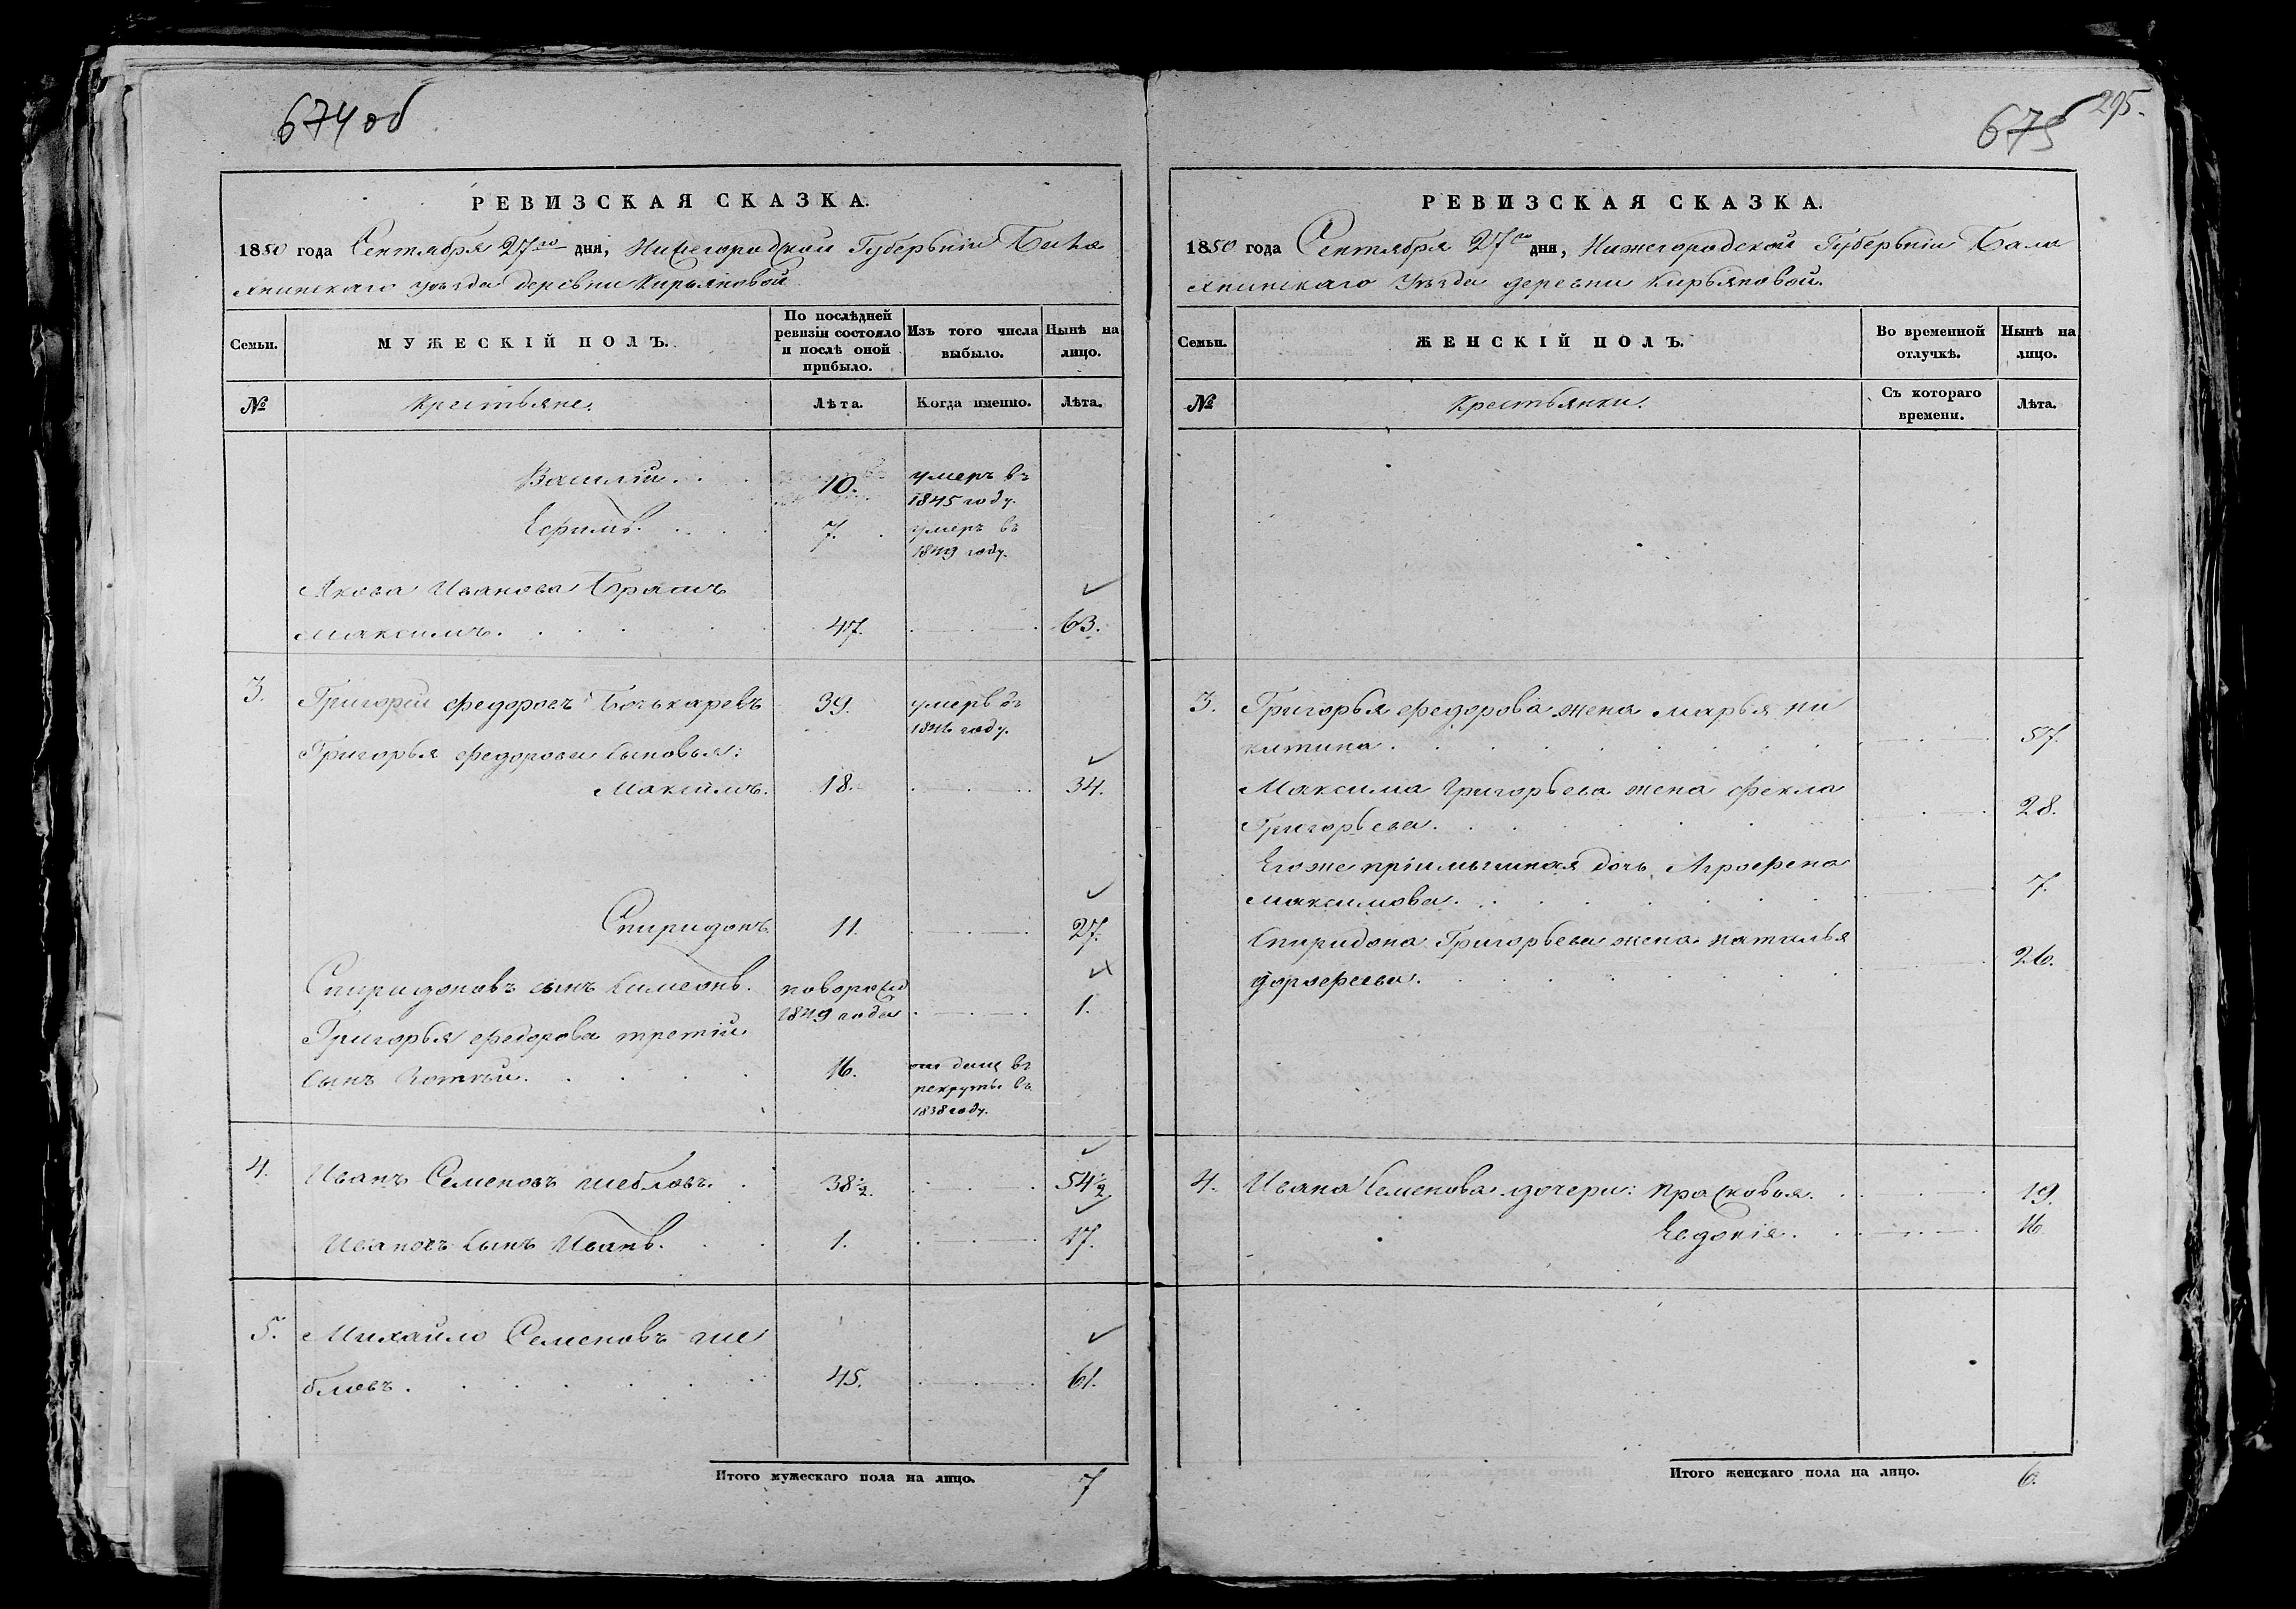 674 об
РЕВИЗСКАЯ СКАЗКА.
1850 года Сентября 27го дня, Нижегородской Губерьніи Бала
хнинскаго уѣзда деревни Кирьяновой
Семьи.
МУЖЕСКІЙ ПОЛЪ.
По послѣдней ревизіи состояло и послѣ оной прибыло.
Изъ того числа выбыло.
Нынѣ на лицо.
№
Крестьяне.
Лѣта.
Когда именно.
Лѣта.
Василій. 10. умеръ въ
1845 году.
Ефимъ. 7. умеръ въ
1849 году.
Якова Иванова Братъ
Максимъ. 47. 63.
3. Григорій Федоровъ Бочькаревъ 39. умеръ въ
1846 году.
Григорья Федорова Сыновья:
Максимъ. 18. 34.
Спиридонъ. 11. 27.
Спиридоновъ сынъ Симеонъ. новорожд
1849 года 1.
Григорья Федорова третій
Сынъ 16. отданъ въ
рекруты въ
1838 году.
4. Иванъ Семеновъ Шебловъ. 38½. 54½
Ивановъ Сынъ Иванъ. 1. 17.
5. Михайло Семеновъ Ше
бловъ. 45. 61.
Итого мужескаго пола на лицо. 7
295.
675
РЕВИЗСКАЯ СКАЗКА.
1850 года Сентября 27го дня, Нижегородской Губерьніи Бала
хнинскаго Уѣзда деревни Кирьяновой.
Семьи.
ЖЕНСКІЙ ПОЛЪ.
Во временной отлучкѣ.
Нынѣ на лицо.
№
Крестьянки.
Съ котораго времени.
Лѣта.
3. Григорья Федорова жена Марья Ни
китина. 57.
Максима Григорьева жена Фекла
Григорьева. 28.
Его же пріимышная дочь Аграфена
Максимова. 7.
Спиридона Григорьева жена Наталья
Дорофеева. 26.
4. Ивана Семенова дочери: Прасковья. 19.
Евдокія. 16
Итого женскаго пола на лицо. 6.